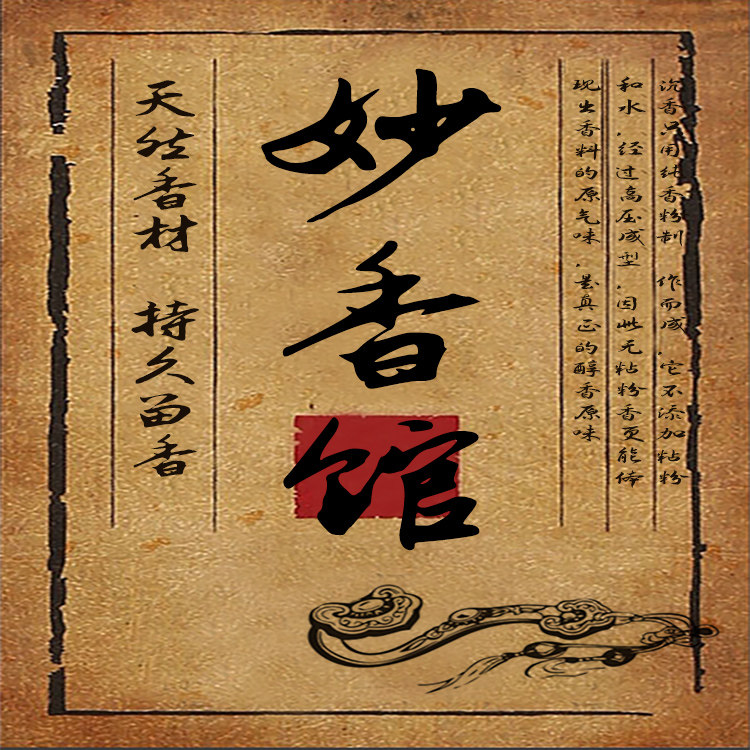 沉香只用纯香粉制 作而成，它不添加粘粉
和水，经过高压成型，因此无粘粉香更能体
现出香料的原气味，是真正的醇香原味
妙香馆
天然香材 持久留香